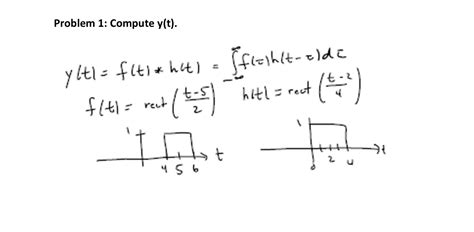 Problem 1: Compute y(t).
y(t) = f(t) * h(t) = ∫_{-∞}^{∞} f(τ)h(t-τ)dτ
f(t) = rect((t-5)/2)
h(t) = rect((t-2)/4)
1
4 5 6
t
1
0 2 4
t